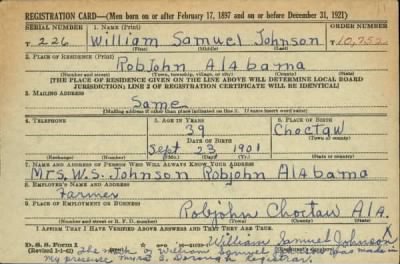 REGISTRATION CARD—(Men born on or after February 17, 1897 and on or before December 31, 1921)
SERIAL NUMBER 1. NAME (Print) ORDER NUMBER
T 226 William Samuel Johnson T10,752
(First) (Middle) (Last)
2. PLACE OF RESIDENCE (Print)
Robjohn Alabama
(Number and street) (Town, township, village, or city) (County) (State)
[THE PLACE OF RESIDENCE GIVEN ON THE LINE ABOVE WILL DETERMINE LOCAL BOARD
JURISDICTION; LINE 2 OF REGISTRATION CERTIFICATE WILL BE IDENTICAL]
3. MAILING ADDRESS
Same
[Mailing address if other than place indicated on line 2. If same insert word same]
4. TELEPHONE 5. AGE IN YEARS 6. PLACE OF BIRTH
39 Choctaw
DATE OF BIRTH (Town or county)
Sept 23 1901
(Exchange) (Number) (Mo.) (Day) (Yr.) (State or country)
7. NAME AND ADDRESS OF PERSON WHO WILL ALWAYS KNOW YOUR ADDRESS
Mrs. W.S. Johnson Robjohn Alabama
8. EMPLOYER'S NAME AND ADDRESS
Farmer
9. PLACE OF EMPLOYMENT OR BUSINESS
Robjohn Choctaw Ala.
(Number and street or R. F. D. number) (Town) (County) (State)
I AFFIRM THAT I HAVE VERIFIED ABOVE ANSWERS AND THAT THEY ARE TRUE.
D. S. S. Form 1 William Samuel Johnson X
(Revised 1-1-42) The of William Samuel was made in
my presence Registrar